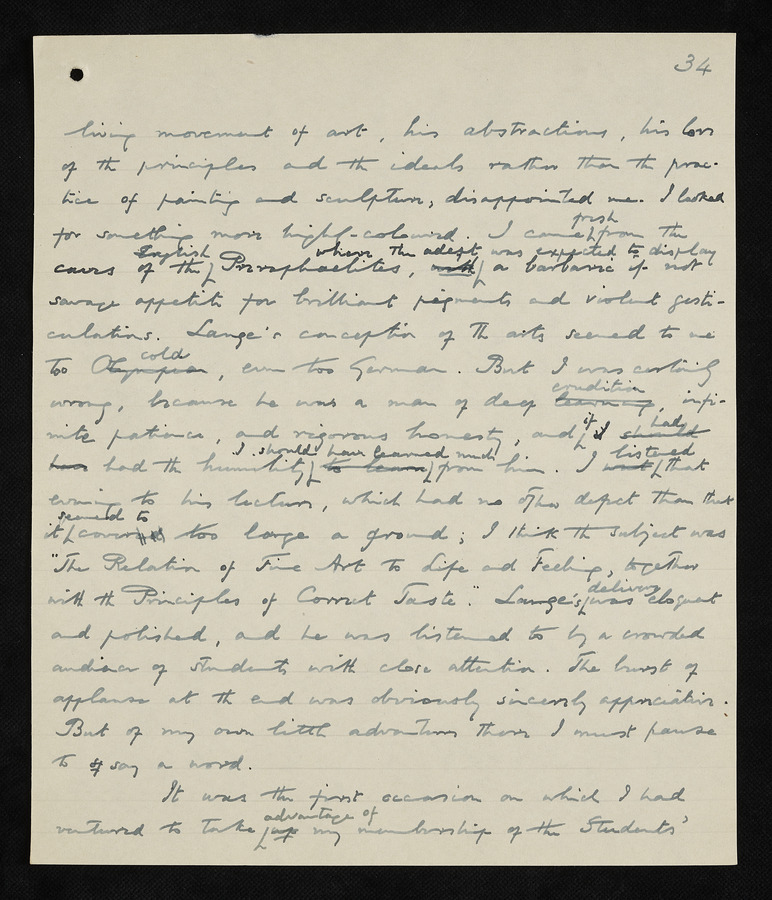 34
living movement of art, his abstractions, his love
of the principles and the ideals rather than the prac-
tice of painting and sculpture, disappointed me. I looked
for something more highly-coloured. I came fresh from the
caves of the English Preraphaelites, with where the adept was expected to display a barbaric if not
savage appetite for brilliant pigments and violent gesti-
culations. Lange's conception of the arts seemed to me
too Olympian cold, even too German. But I was certainly
wrong, because he was a man of deep learning, erudition infi-
nite patience, and rigorous honesty, and if I should had
have had the humility to learn I should have learned much from him. I went listened that
evening to his lecture, which had no other defect than that
it seemed to cover too large a ground; I think the subject was
"The Relation of Fine Art to Life and Feeling, together
with the Principles of Correct Taste." Lange's delivery was eloquent
and polished, and he was listened to by a crowded
audience of students with close attention. The burst of
applause at the end was obviously sincerely appreciative.
But of my own little adventure there I must pause
to say a word.
It was the first occasion on which I had
ventured to take up advantage of my membership of the Students'